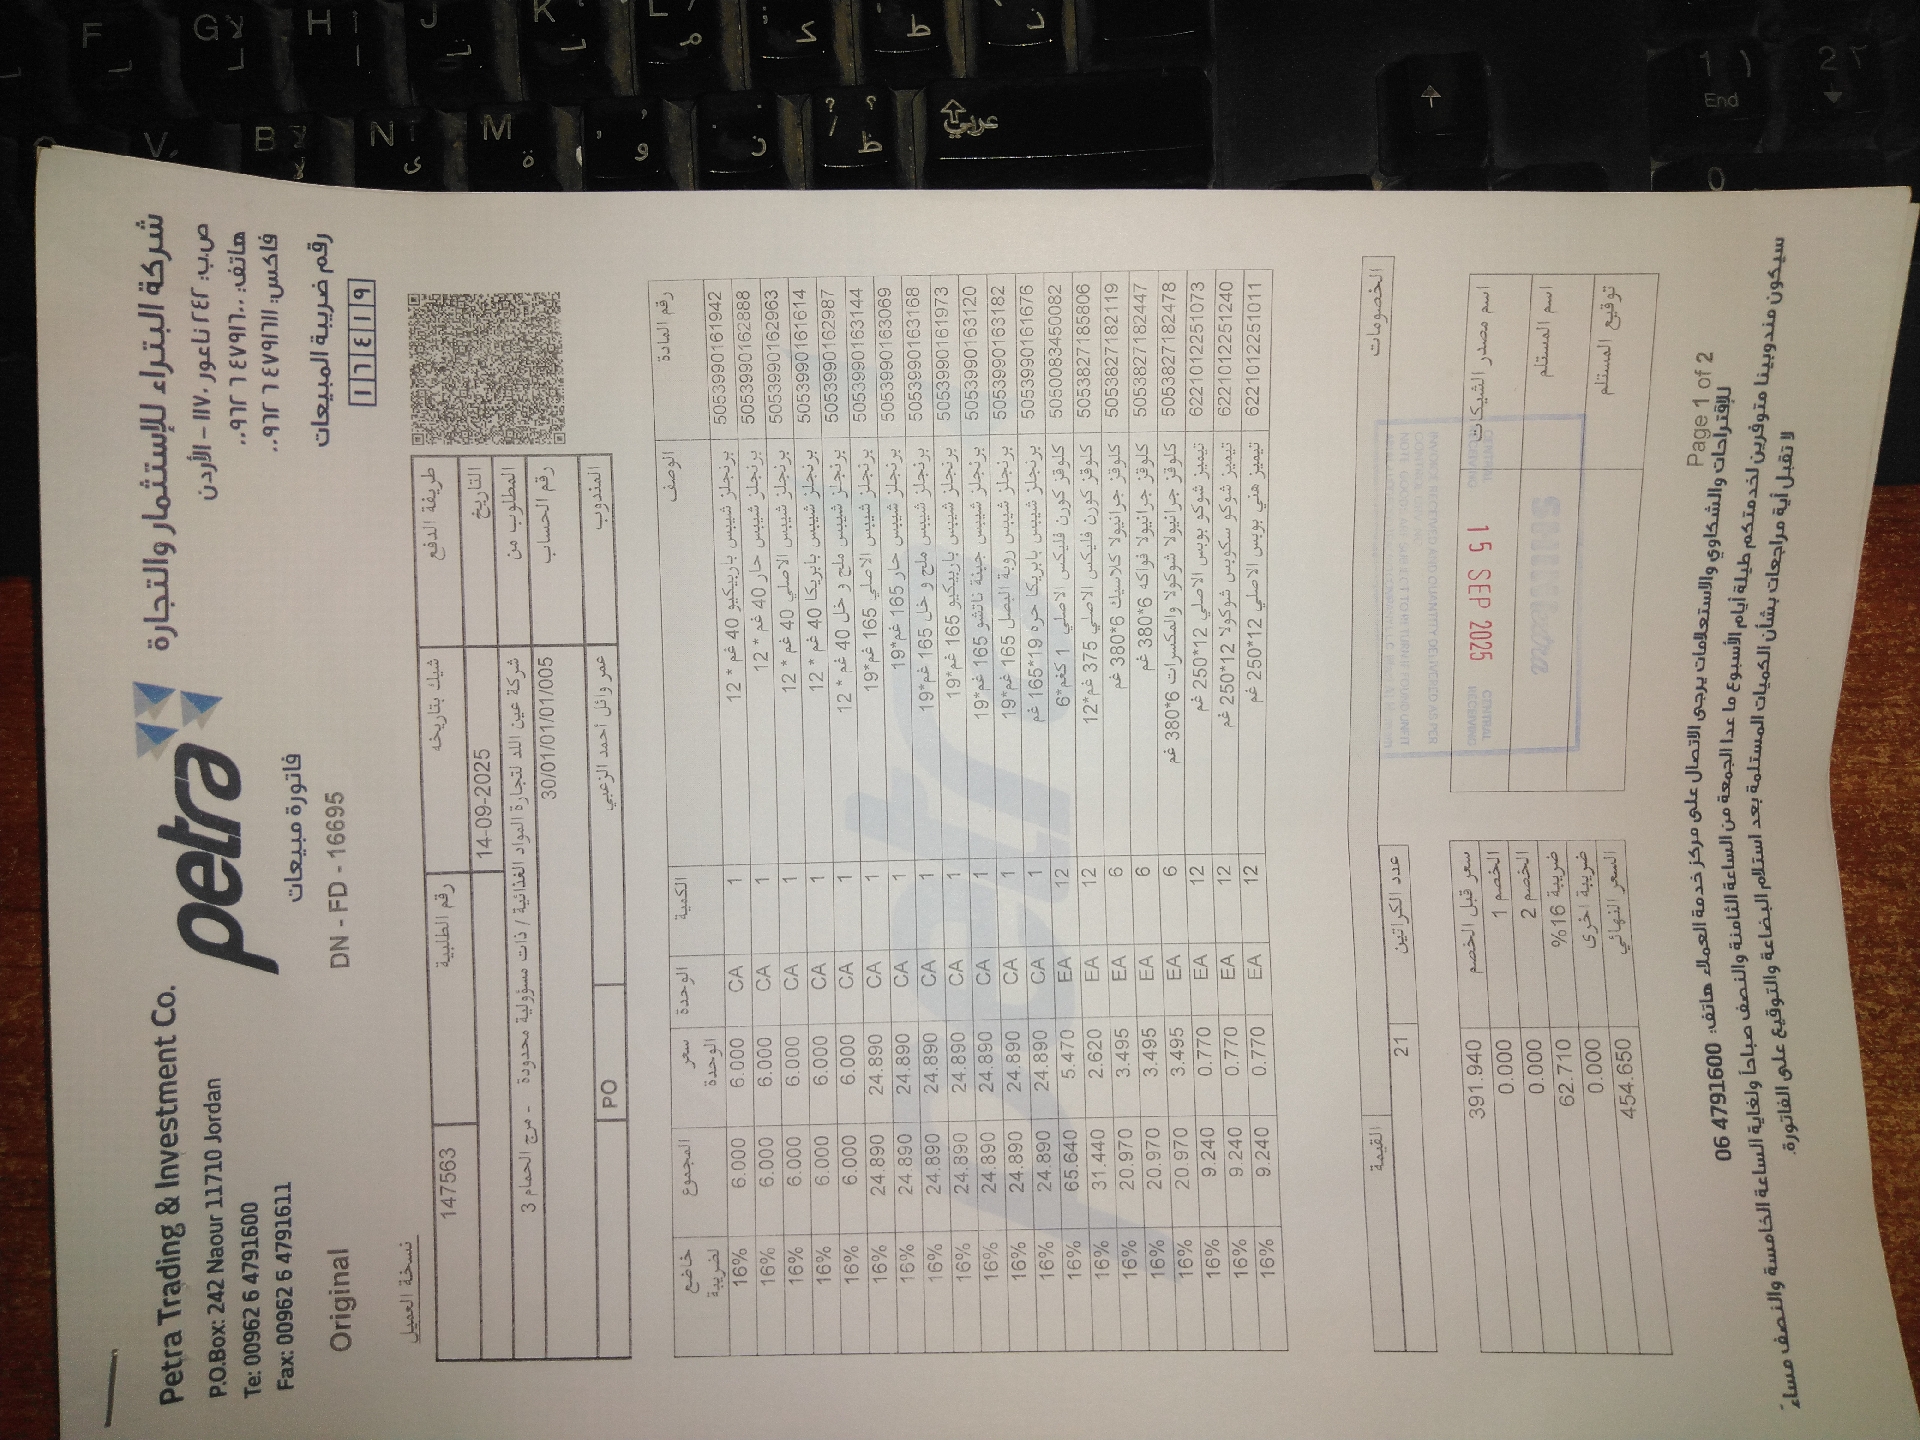 Petra Trading & Investment Co.
P.O.Box: 242 Naour 11710 Jordan
Te: 00962 6 4791600
Fax: 00962 6 4791611
petra
شركة البتراء للإستثمار والتجارة
ص.ب: ٢٤٢ ناعور ١١٧١٠ – الأردن
هاتف: ٤٧٩١٦٠٠ ٦ ٠٠٩٦٢
فاكس: ٤٧٩١٦١١ ٦ ٠٠٩٦٢
رقم ضريبة المبيعات
١ ٦ ٤ ١ ٩
فاتورة مبيعات
Original
DN - FD - 16695
نسخة العميل
طريقة الدفع شيك بتاريخه رقم الطلبية 147563
التاريخ 14-09-2025
المطلوب من شركة عين اللد لتجارة المواد الغذائية / ذات مسؤولية محدودة - مرج الحمام 3
رقم الحساب 30/01/01/01/005
المندوب عمر وائل أحمد الزعبي PO
رقم المادة الوصف الكمية الوحدة سعر الوحدة المجموع خاضع لضريبة
5053990161942 برنجلز شيبس باربيكيو 40 غم * 12 1 CA 6.000 6.000 16%
5053990162888 برنجلز شيبس حار 40 غم * 12 1 CA 6.000 6.000 16%
5053990162963 برنجلز شيبس الاصلي 40 غم * 12 1 CA 6.000 6.000 16%
5053990161614 برنجلز شيبس بابريكا 40 غم * 12 1 CA 6.000 6.000 16%
5053990162987 برنجلز شيبس ملح و خل 40 غم * 12 1 CA 6.000 6.000 16%
5053990163144 برنجلز شيبس الاصلي 165 غم*19 1 CA 24.890 24.890 16%
5053990163069 برنجلز شيبس حار 165 غم*19 1 CA 24.890 24.890 16%
5053990163168 برنجلز شيبس ملح و خل 165 غم*19 1 CA 24.890 24.890 16%
5053990161973 برنجلز شيبس باربيكيو 165 غم*19 1 CA 24.890 24.890 16%
5053990163120 برنجلز شيبس جبنة ناتشو 165 غم*19 1 CA 24.890 24.890 16%
5053990163182 برنجلز شيبس روبة البصل 165 غم*19 1 CA 24.890 24.890 16%
5053990161676 برنجلز شيبس بابريكا حره 19*165 غم 1 CA 24.890 24.890 16%
5050083450082 كلوقز كورن فليكس الاصلي 1 كغم*6 12 EA 5.470 65.640 16%
5053827185806 كلوقز كورن فليكس الاصلي 375 غم*12 12 EA 2.620 31.440 16%
5053827182119 كلوقز جرانيولا كلاسيك 6*380 غم 6 EA 3.495 20.970 16%
5053827182447 كلوقز جرانيولا فواكه 6*380 غم 6 EA 3.495 20.970 16%
5053827182478 كلوقز جرانيولا شوكولا والمكسرات 6*380 غم 6 EA 3.495 20.970 16%
6221012251073 تيميز شوكو بوبس الاصلي 12*250 غم 12 EA 0.770 9.240 16%
6221012251240 تيميز شوكو سكوبس شوكولا 12*250 غم 12 EA 0.770 9.240 16%
6221012251011 تيميز هني بوبس الاصلي 12*250 غم 12 EA 0.770 9.240 16%
الخصومات عدد الكراتين 21 القيمة
سعر قبل الخصم 391.940
الخصم 1 0.000
الخصم 2 0.000
ضريبة 16% 62.710
ضريبة اخرى 0.000
السعر النهائي 454.650
اسم مصدر الشيكات
اسم المستلم
توقيع المستلم
CENTRAL RECEIVING
15 SEP 2025
CENTRAL RECEIVING
Page 1 of 2
للإقتراحات والشكاوي والاستعلامات يرجى الاتصال على مركز خدمة العملاء هاتف: 06 4791600
سيكون مندوبينا متوفرين لخدمتكم طيلة أيام الأسبوع ما عدا الجمعة من الساعة الثامنة والنصف صباحا ولغاية الساعة الخامسة والنصف مساءً
لا تقبل أية مراجعات بشأن الكميات المستلمة بعد استلام البضاعة والتوقيع على الفاتورة.
F G H J K L
V B N M
عربي
End
1 2 0